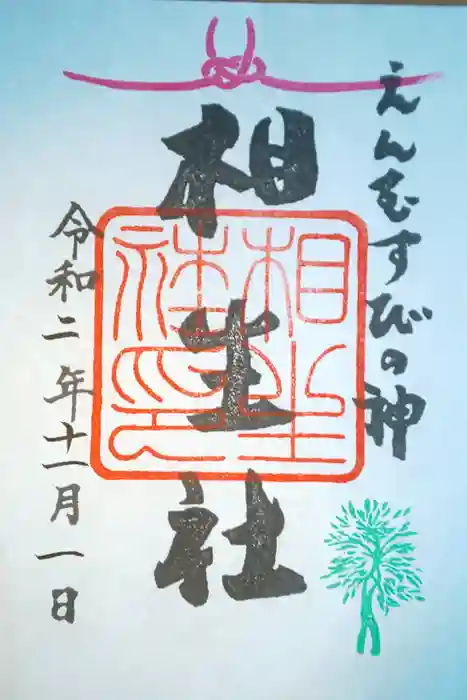 えんむすびの神
相生社
相生
社印
令和二年十一月一日